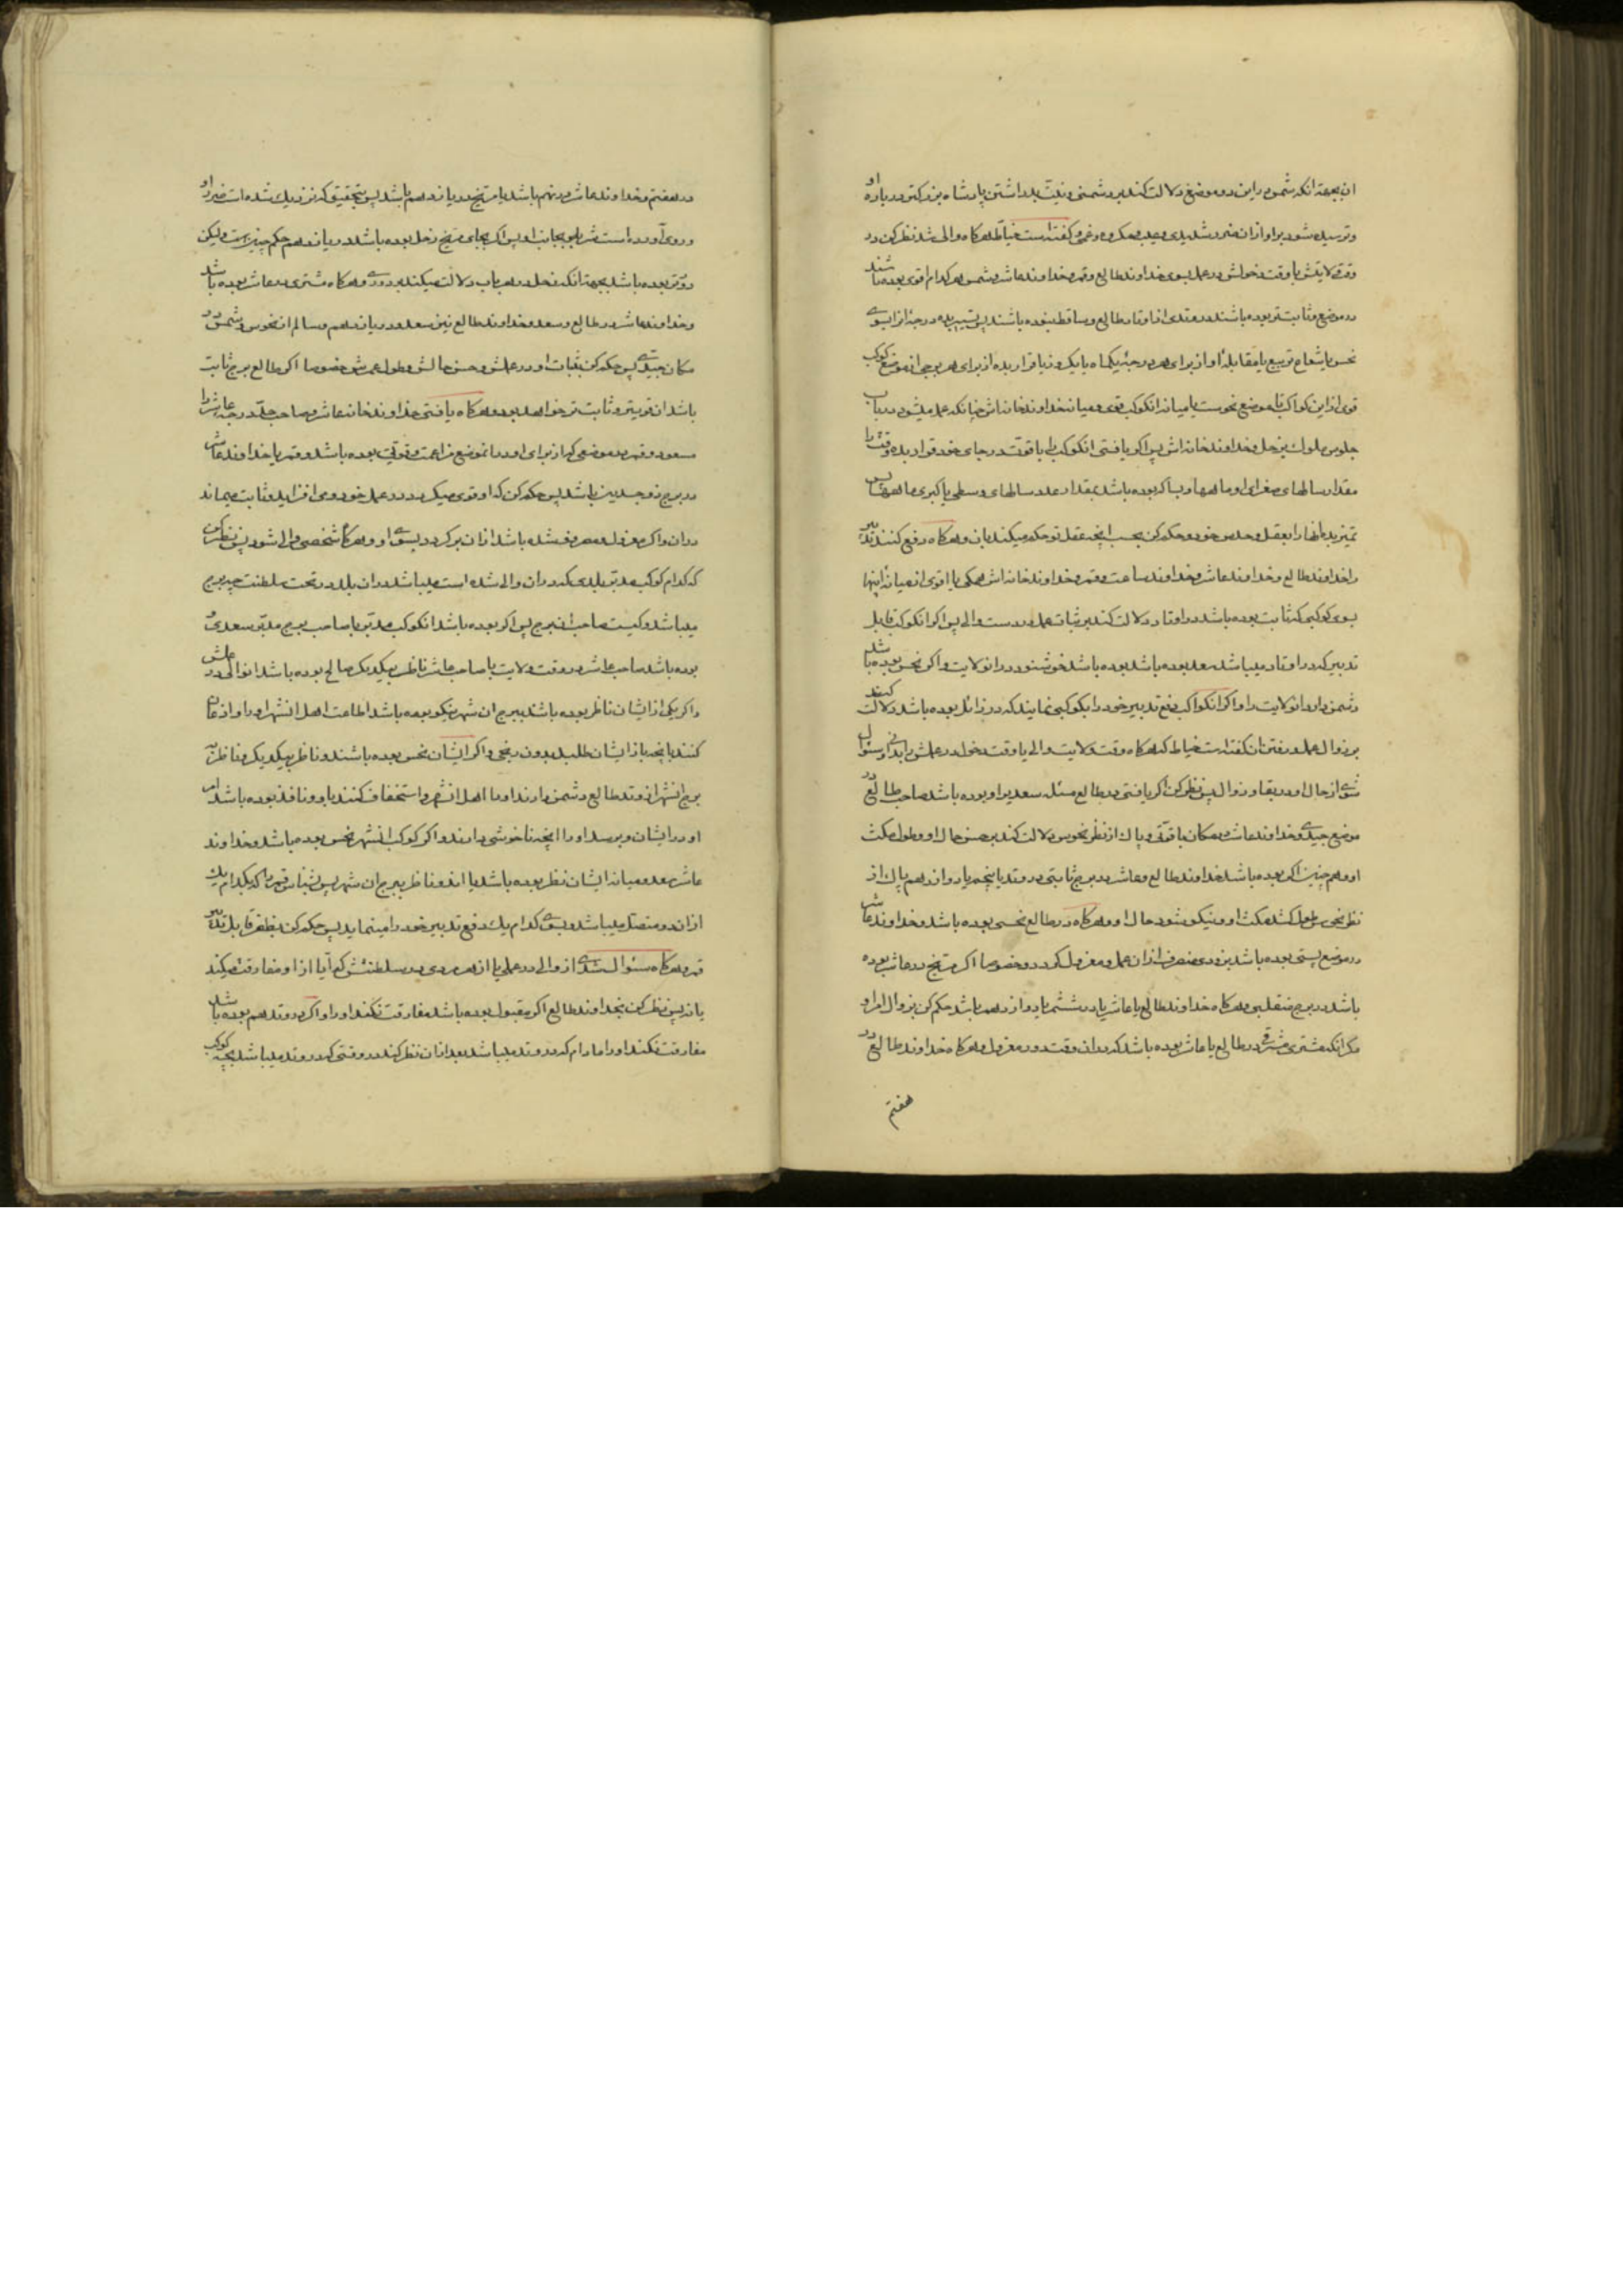 ان بجهة انکه شمس در این دو موضع دلالت کند بر دشمنی و نیت بد داشتن پادشاه بزرکتر درباره او
و ترسیده شود بر او از ان ضرر شدیدی و و مکروه و غمی و کفته است خیاط هرکاه والی شد نظر کن در
وقت ولایتش یا وقت دخولش در عمل بسوی خداوند طالع و قمر و خداوند عاشر و شمس هر کدام اقوی بوده باشند
در موضع و ثابت تر بوده باشند در وتدی از اوتاد طالع و ساقط نبوده باشند پس تسییر بده درجهٔ او را بسوی
نحس یا شعاع تربیع یا مقابلهٔ او از برای هر درجهٔ یکماه یا یکروز یا قرار بده از برای هر برجی از موضع کوکب
قوی از این کواکب تا موضع نحوست یا میانه انکوکب قوی و میانه خداوند خانه اش چنانکه عمل میشود در باب
جلوس ملوک بزحل و خداوند خانه اش پس اکر یافتی انکوکب را با قوت در جای خود قرار بده وقت را
مقدار سالهای صغرای او ماهها و بسا که بوده باشد بمقدار عدد سالهای وسطی یا کبری ماهها پس
تمیز بده انها را بعقل و حدس خود و حکم کن بحسب انچه عقل تو حکم میکند بان و هرکاه دفع کنند تدبیر
را خداوند طالع و خداوند عاشر و خداوند ساعت و قمر و خداوند خانه اش همکی یا اقوی از میانه اینها
بسوی کوکبی که ثابت بوده باشد در اوتاد دلالت کند بر ثبات عمل در دست والی پس اکر انکوکب قابل
تدبیر که در اوتاد میباشد سعد بوده باشد بوده باشد خوشنود در انولایت و اکر نحس بوده باشد
دشمن دارد انولایت را و اکر انکواکب دفع تدبیر خود را بکوکبی نمایند که در زائل بوده باشد دلالت کند
بر زوال عمل و رفتن ان کفته است خیاط که هرکاه وقت ولایت والی یا وقت دخول در عملش را ندانی و سئوال
شوی از حال او در بقا و زوال پس نظر کن اکر یافتی در طالع مسئله سعدیرا و بوده باشد صاحب طالع در
موضع جیدی و خداوند عاشر در مکان با قوتی و پاک از نظر نحوس دلالت کند بر حسن حال او و طول مکث
او و هم چنین اکر بوده باشد خداوند طالع و عاشر در برج ثابتی در وتد یا پنجم یا دوازدهم پاک از
نظر نحوس طول کشد مکث او و نیکو شود حال او و هرکاه در طالع نحسی بوده باشد و خداوند عاشر
در موضع پستی بوده باشد بزودی منصرف از ان عمل و معزول کردد و خصوصا اکر مریخ در عاشر بوده
باشد در برج منقلبی و هرکاه خداوند طالع یا عاشر یا در ششم یا دوازدهم باشد حکم کن بزوال امر او
مکر انکه مشتری مشرقی در طالع یا عاشر بوده باشد که در ان وقت دور معزول و هرکاه خداوند طالع در
هفتم
در هفتم و خداوند عاشر در نهم باشد یا مریخ در یازدهم باشد پس بتحقیق که نزدیک شده است ضرر او
و روی آورده است شر بسوی بجانب او پس اکر بجای مریخ زحل بوده باشد در یازدهم حکم چنین است ولیکن
دورتر بوده باشد بجهة انکه زحل در هر باب دلالت میکند بر دوری و هرکاه مشتری در عاشر بوده باشد
و خداوند عاشر در طالع و سعد و خداوند طالع نیز سعد و در یازدهم و سالم از نحوس و شمس در
مکان جیدی پس حکم کن بثبات او در عملش و حسن حالش و طول عمرش خصوصا اکر طالع برج ثابت
باشد ان قویتر و ثابت تر خواهد بود و هرکاه یافتی خداوند خانه عاشر و صاحب حد درجه عاشر را
مسعود و قمر در موضعی که از برای او در انموضع مزاعمت و قوتی بوده باشد و قمر یا خداوند عاشر
در برج ذو جسدین باشد پس حکم کن که او قوی میکردد در عمل خود و می افزاید و ثابت میماند
در ان و اکر معزول و مصروف شده باشد از ان برکردد بسوی او و هرکاه شخصی والی شود پس نظر کن
که کدام کوکب مدبر بلدی که در ان والی شده است میباشد در ان بلد در تحت سلطنت چه برج
میباشد و کیست صاحب ان برج پس اکر بوده باشد انکوکب مدبر یا صاحب برج مدبر سعدی
بوده باشد صاحب عاشر در وقت ولایت با صاحب عاشر ناظر بیکدیکر صالح بوده باشد انوالی در عملش
و اکر یکی از ایشان ناظر بوده باشد ببرج ان شهر نیکو بوده باشد اطاعت اهل انشهر او را و اذعان
کنند بانچه باز ایشان طلبد بدون رنجی و اکر ایشان نحس بوده باشند و ناظر بیکدیکر و ناظر به
برج انشهر از وتد طالع دشمن دارند او را اهل انشهر و استخفاف کنند باو و نافذ بوده باشد امر
او در ایشان و برسد او را انچه ناخوشی دارند و اکر کوکب انشهر نحس بوده باشد و خداوند
عاشر سعد و میانه ایشان نظر بوده باشد یا اند و ناظر ببرج ان شهر پس بشناس قمر را که بکدام یک
از ان دو متصل میباشد و بسوی کدام یک دفع تدبیر خود را مینماید پس حکم کن بظفر قابل تدبیر
قمر و هرکاه سئوال شدی از والی در عملی یا از هر مردی در سلطنتش که آیا از او مفارقت میکند
یا نه پس نظر کن بخداوند طالع اکر مقبول بوده باشد مفارقت نکند او را و اکر در وتد هم بوده باشد
مفارقت نکند او را مادام که در وتد میباشد بعد از ان نظر کند در وقتی که در وتد میباشد بچه کوکب